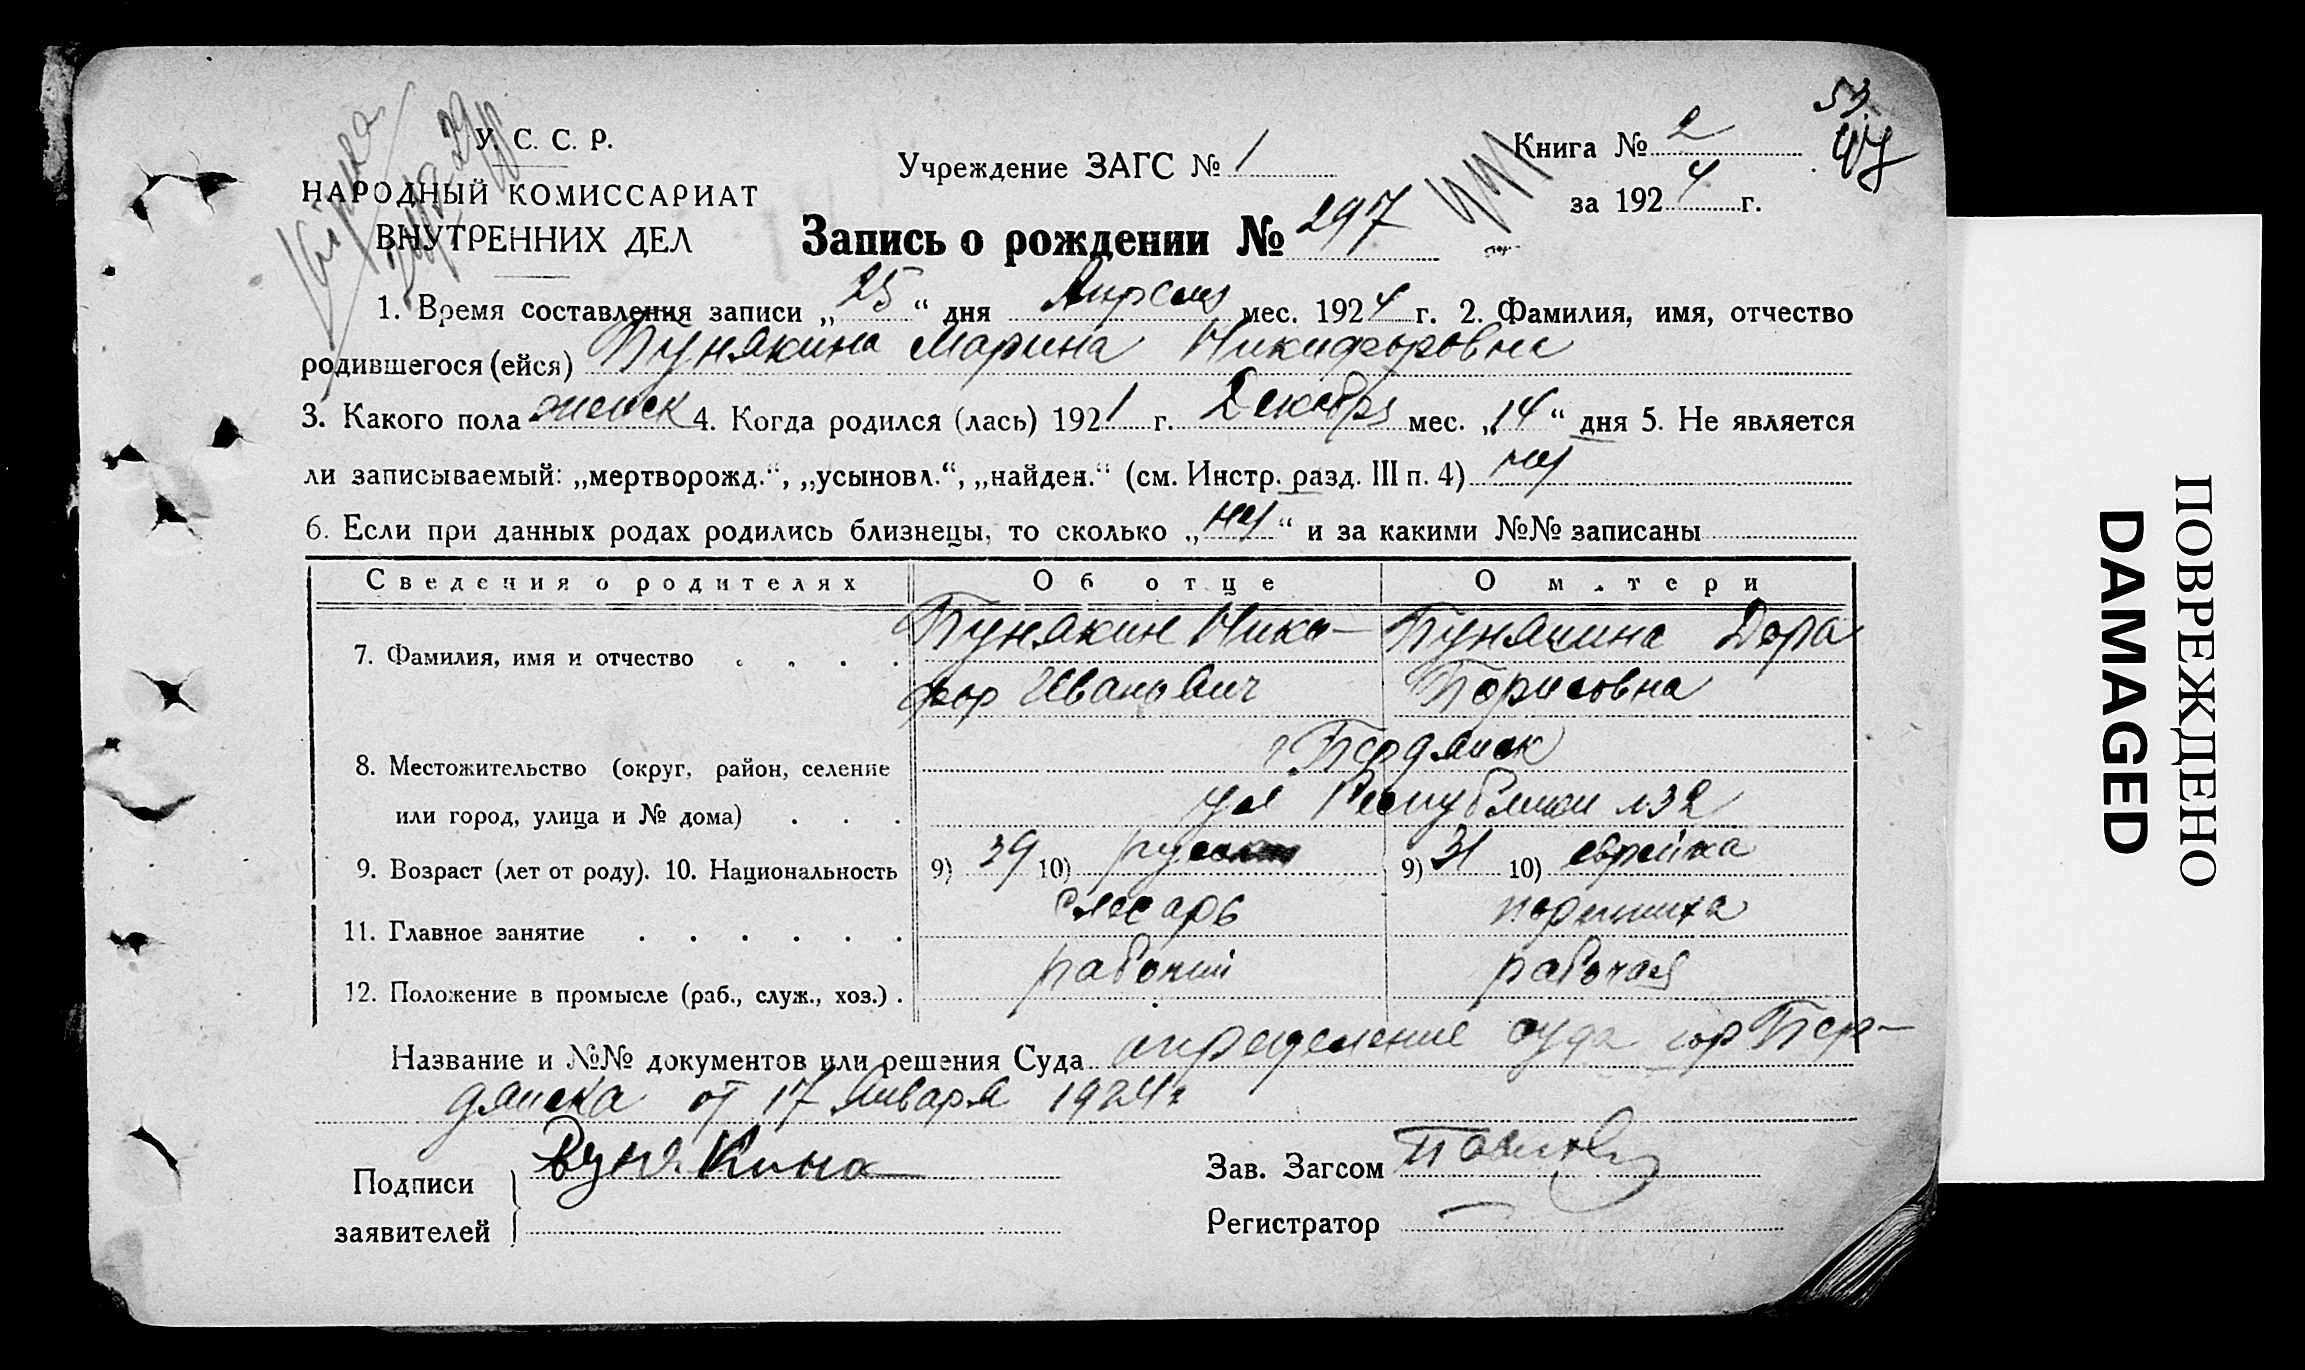 53
У. С. С. Р.
НАРОДНЫЙ КОМИССАРИАТ
ВНУТРЕННИХ ДЕЛ
Учреждение ЗАГС № 1
Книга № 2
за 1924 г.
Запись о рождении № 297
1. Время составления записи „25“ дня Апреля мес. 1924 г. 2. Фамилия, имя, отчество
родившегося (ейся) Бунякина Марина Никифоровна
3. Какого пола женск 4. Когда родился (лась) 1921 г. Декабря мес. „14“ дня 5. Не является
ли записываемый: „мертворожд.“, „усыновл.“, „найден.“ (см. Инстр. разд. III п. 4) нет
6. Если при данных родах родились близнецы, то сколько „нет“ и за какими №№ записаны
Сведения о родителях Об отце О матери
7. Фамилия, имя и отчество Бунякин Ники- Бунякина Дора
фор Иванович Борисовна
8. Местожительство (округ, район, селение г Бердянск
или город, улица и № дома) ул Республики №32
9. Возраст (лет от роду). 10. Национальность 9) 39 10) русский 9) 31 10) еврейка
11. Главное занятие слесарь портниха
12. Положение в промысле (раб., служ., хоз.) рабочий рабочая
Название и №№ документов или решения Суда определение суда гор Бер-
дянска от 17 Января 1924 г
Подписи Бунякина Зав. Загсом
заявителей Регистратор
ПОВРЕЖДЕНО
DAMAGED